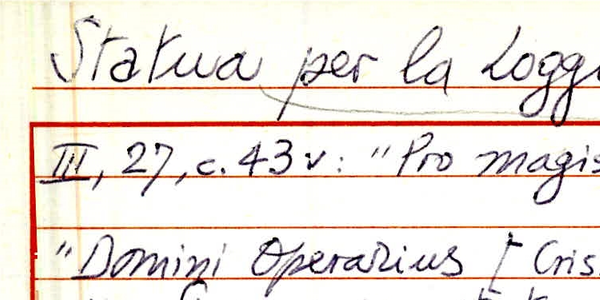 Statua per la Logg
III, 27, c. 43v: "Pro magis
"Domini Operarius [ Cris